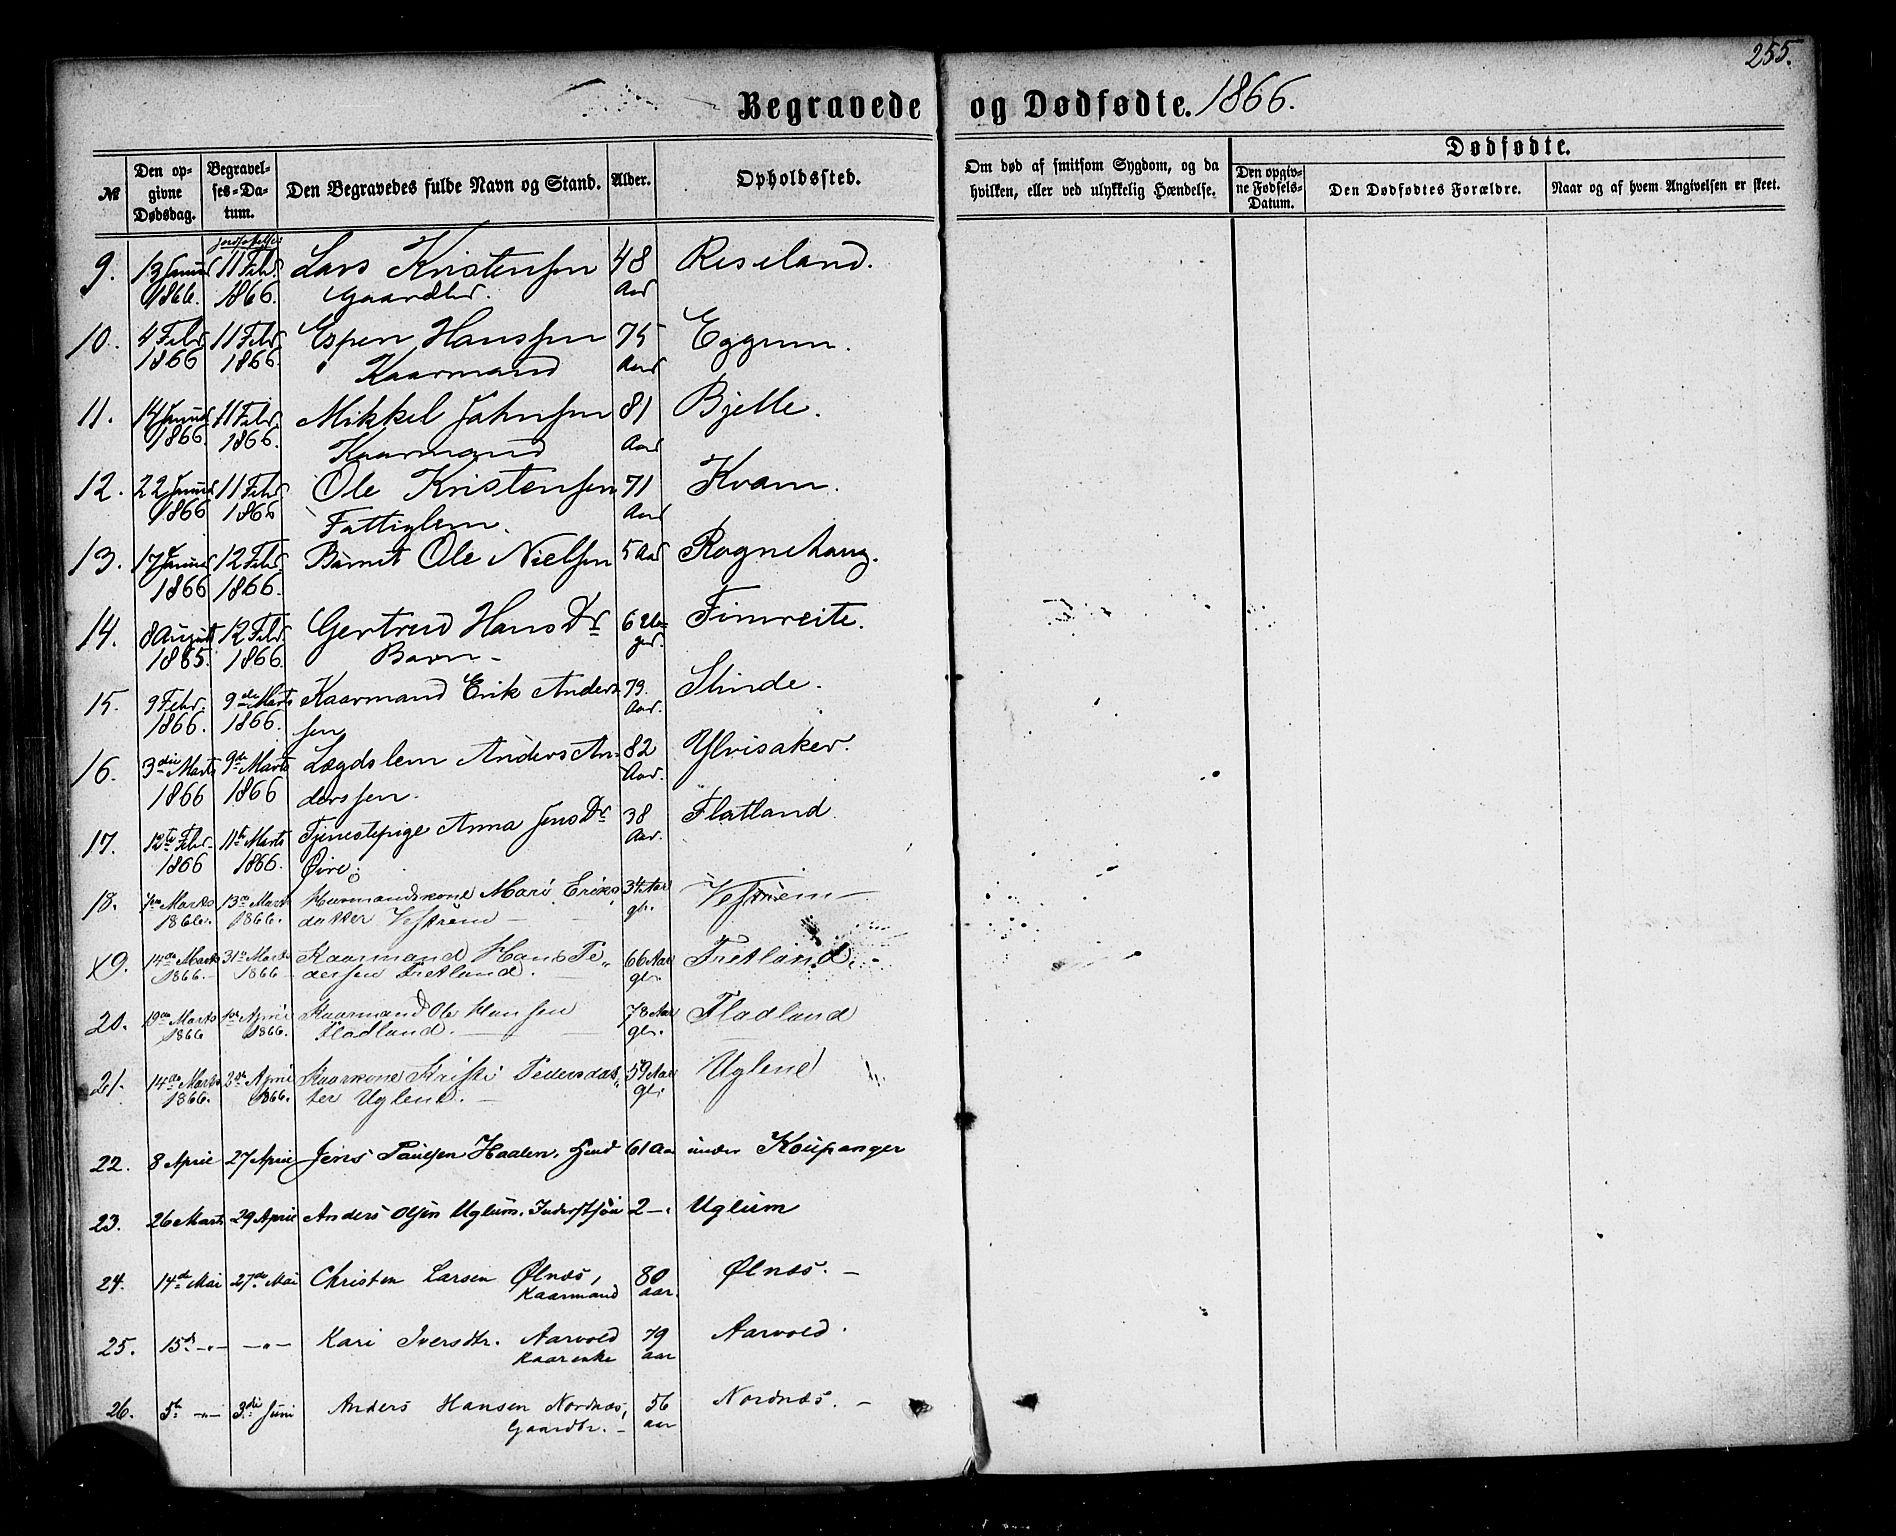 255.
Begravede og Dødfødte. 1866.
Dødfødte.
№ Den opgivne Dødsdag. Begravelses-Datum. Den Begravedes fulde Navn og Stand. Alder. Opholdssted. Om død af smitsom Sygdom, og da hvilken, eller ved ulykkelig Hændelse. Den opgivne Fødsels-Datum. Den Dødfødtes Forældre. Naar og af hvem Angivelsen er skeet.
9. 13 Januar 11 Febr Lars Kristensen 48 Reseland.
1866. 1866. Gaardbr. Aar
10. 4 Febr 11 Febr Espen Hanssen 75 Eggum.
1866 1866. Kaarmand Aar
11. 14 Januar 11 Febr. Mikkel Johnsen 81 Bjelle.
1866 1866. Kaarmand Aar
12. 22 Januar 11 Febr Ole Kristensen 71 Kvam.
1866 1866 Fattiglem. Aar
13. 17 Januar 12 Febr. Barnet Ole Nielsen 5 Aar Rognehaug.
1866 1866.
14. 8 August 12 Febr Gertrud Hans Dr 6 Uger. Fimreite.
1865. 1866. Barn -
15. 9 Febr. 9de Marts Kaarmand Erik Anders 79. Slinde.
1866. 1866. sen Aar.
16. 3die Marts 9de Marts Lægdslem Anders An 82 Ylvisaker.
1866 1866 derssen. Aar.
17. 12te Febr. 11te Marts Tjenestepige Anna Jens Dr 38 Flatland.
1866 1866. Øvre. Aar.
18. 7de Marts 13de Marts Huusmandskone Mari Eriks 34 Aar Vestrem -
1866. 1866. datter Vestrem - gl.
19. 14de Marts 31te Marts Kaarmand Hans Pe„ 66 Aar Fretland. -
1866. - 1866 - dersen Fretland. - gl.
20. 19de Marts 1ste April Kaarmand Ole Hansen 78 Aar Fladland
1866 1866. Fladland. - gl.
21. 14de Marts 2den April Kaarkone Kristi Pedersdat„ 59 Aar Uglend
1866. 1866. ter Uglend. - gl.
22. 8 April 27 April Jens Paulsen Haalen, 61 Aar under Kaupanger
23. 26 Marts 29 April Anders Olsen Uglum. 2 -. Uglum
24. 14de Mai 27de Mai Christen Larsen Ølnæs, 80 Ølnæs. -
Kaarmand aar.
25. 15de -"- -"- Kari Iversdtr. Aarvold 79 Aarvold.
Kaarenke aar
26. 5te -"- 3die Juni Anders Hansen Nordnæs, 56 Nordnæs. -
Gaardbr. - aar